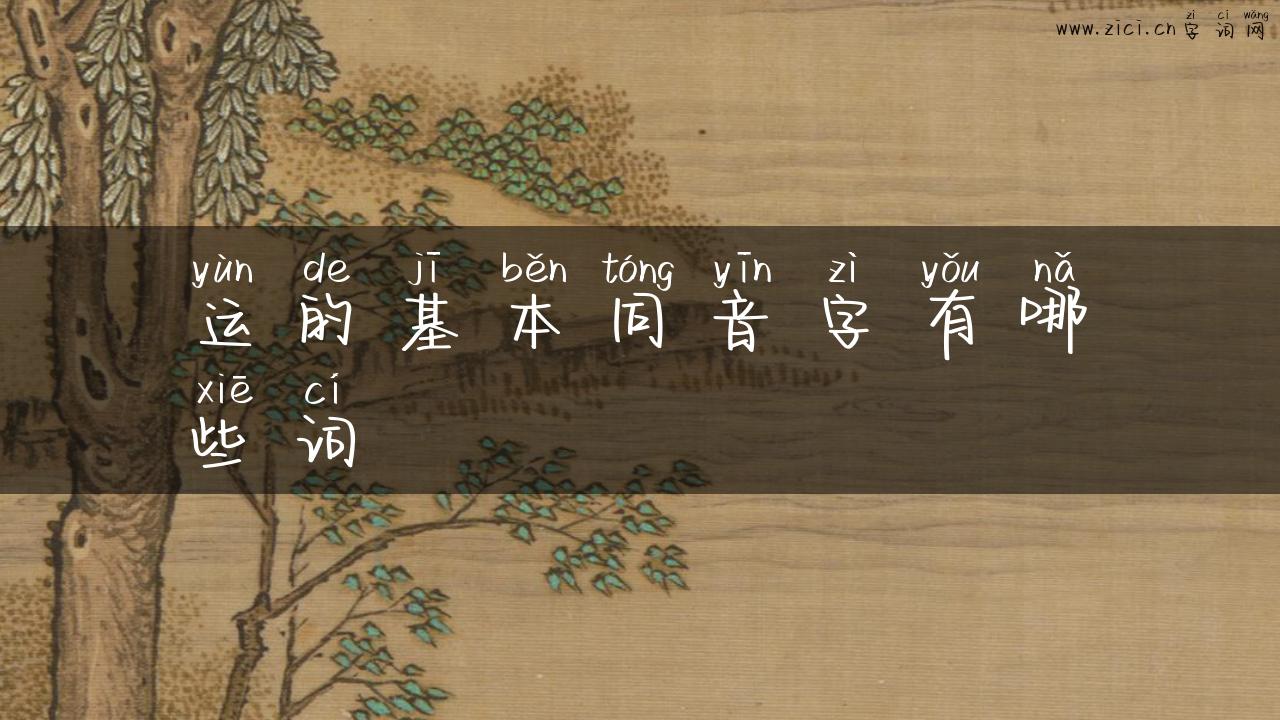 zì cí wǎng
www.zici.cn 字词网
yùn de jī běn tóng yīn zì yǒu nǎ
运的基本同音字有哪
xiē cí
些词